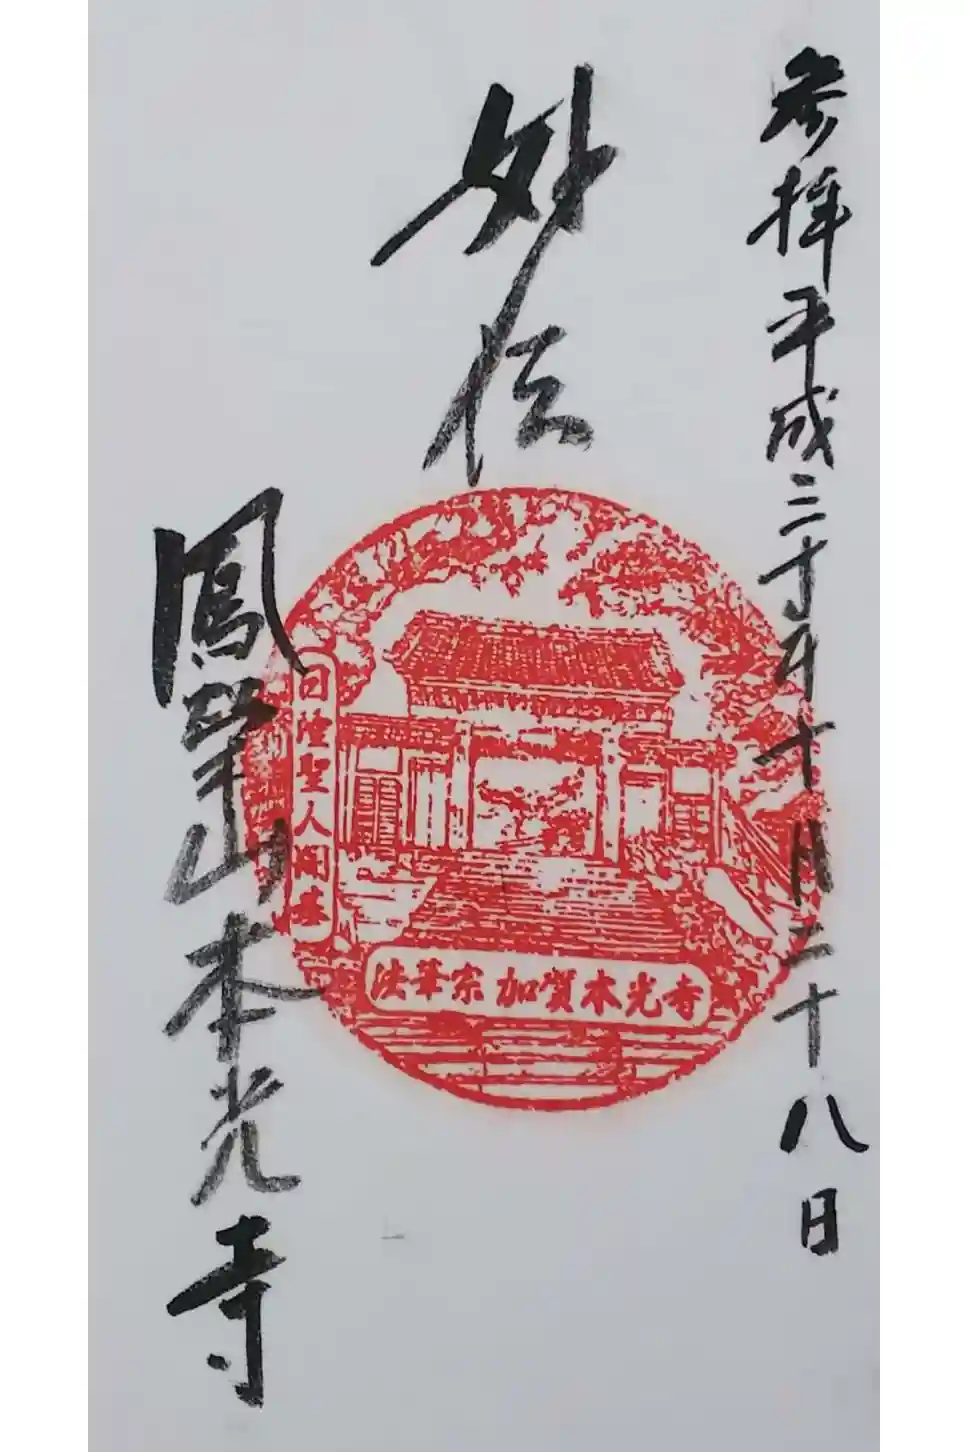 参拝平成三十年十月二十八日
妙
鳳山本光寺
日隆聖人開基
法華宗 加賀本光寺